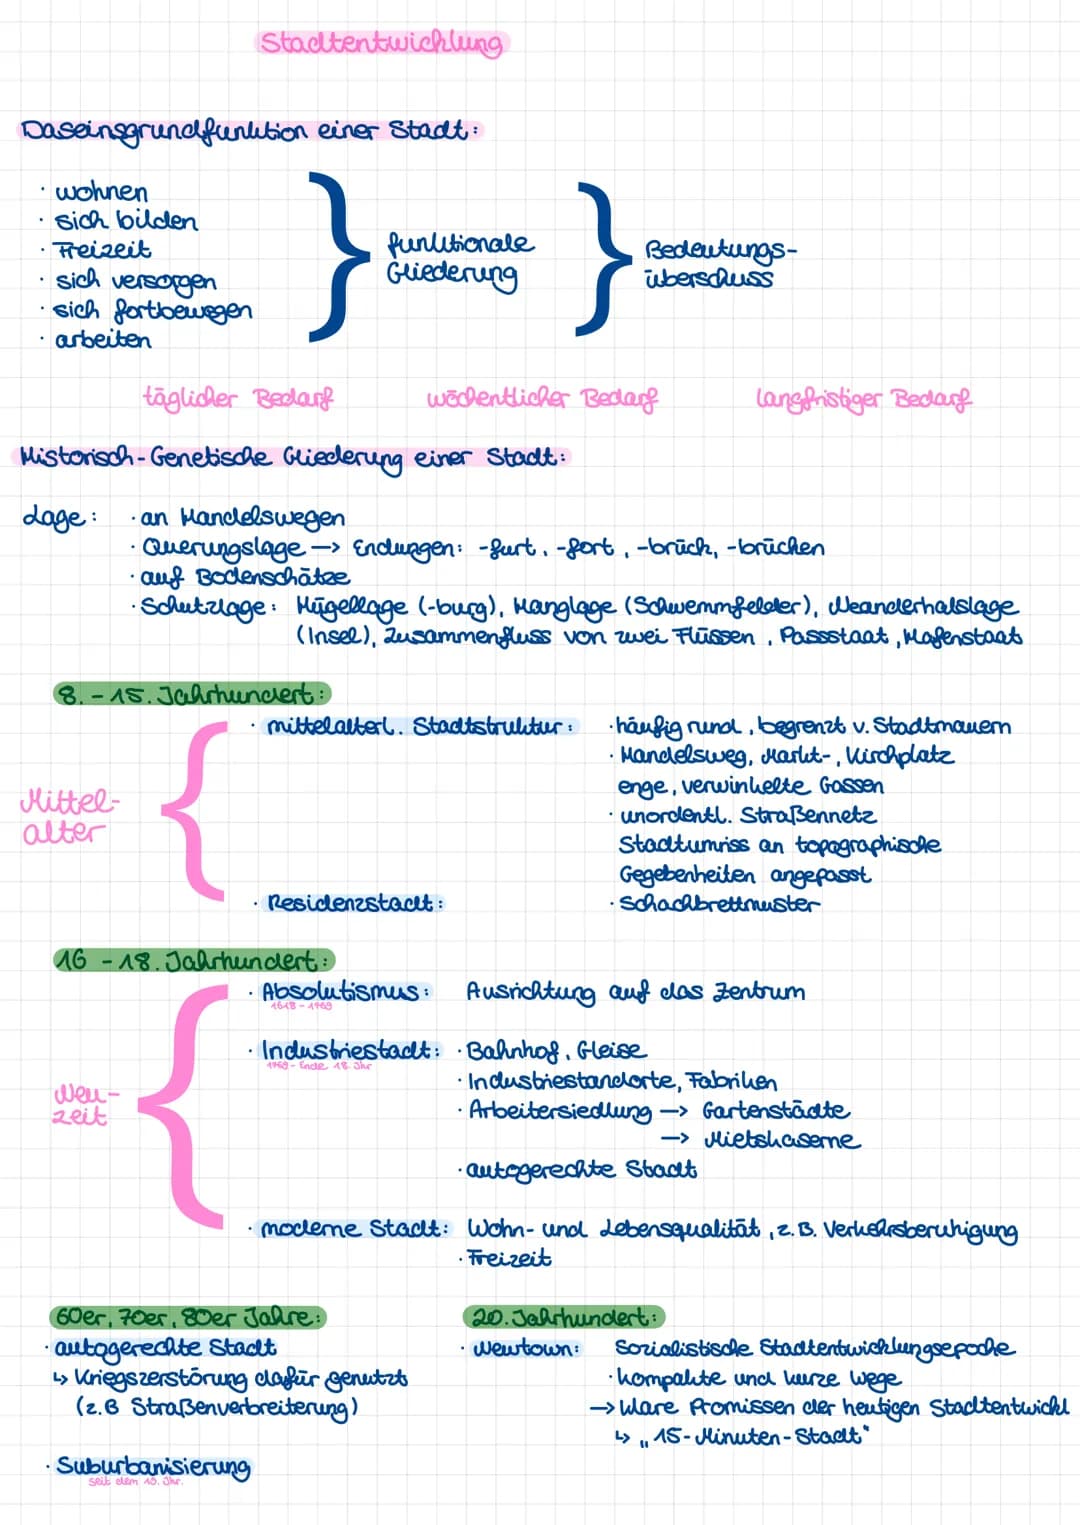 Stadtentwicklung
Daseinsgrundfunktion einer Stadt:
· wohnen
· sich bilden
· Freizeit
· sich versorgen
· sich fortbewegen
· arbeiten
funktionale
Gliederung
Bedeutungs-
überschuss
täglicher Bedarf wöchentlicher Bedarf langfristiger Bedarf
Historisch-Genetische Gliederung einer Stadt:
Lage: · an Handelswegen
· Querungslage → Endungen: -furt, -fort, -brück, -brücken
· auf Bodenschätze
· Schutzlage: Hügellage (-burg), Hanglage (Schwemmfelder), Meanderhalslage
(Insel), Zusammenfluss von zwei Flüssen, Passstaat, Hafenstaat
8. - 15. Jahrhundert:
Mittel-
alter
· mittelalterl. Stadtstruktur: · häufig rund, begrenzt v. Stadtmauern
· Handelsweg, Markt-, Kirchplatz
enge, verwinkelte Gassen
· unordentl. Straßennetz
Stadtumriss an topographische
Gegebenheiten angepasst
· Residenzstadt: · Schachbrettmuster
16 - 18. Jahrhundert:
Neu-
zeit
· Absolutismus: Ausrichtung auf das Zentrum
1618 - 1769
· Industriestadt: · Bahnhof, Gleise
1769 - Ende 18. Jhr
· Industriestandorte, Fabriken
· Arbeitersiedlung → Gartenstädte
→ Mietskaserne
· autogerechte Stadt
· moderne Stadt: Wohn- und Lebensqualität, z.B. Verkehrsberuhigung
· Freizeit
60er, 70er, 80er Jahre:
· autogerechte Stadt
↳ Kriegszerstörung dafür genutzt
(z.B Straßenverbreiterung)
· Suburbanisierung
seit dem 19. Jhr.
20. Jahrhundert:
· Newtown: Sozialistische Stadtentwicklungsepoche
· kompakte und kurze Wege
→ klare Promissen der heutigen Stadtentwickl
↳ „15-Minuten-Stadt"